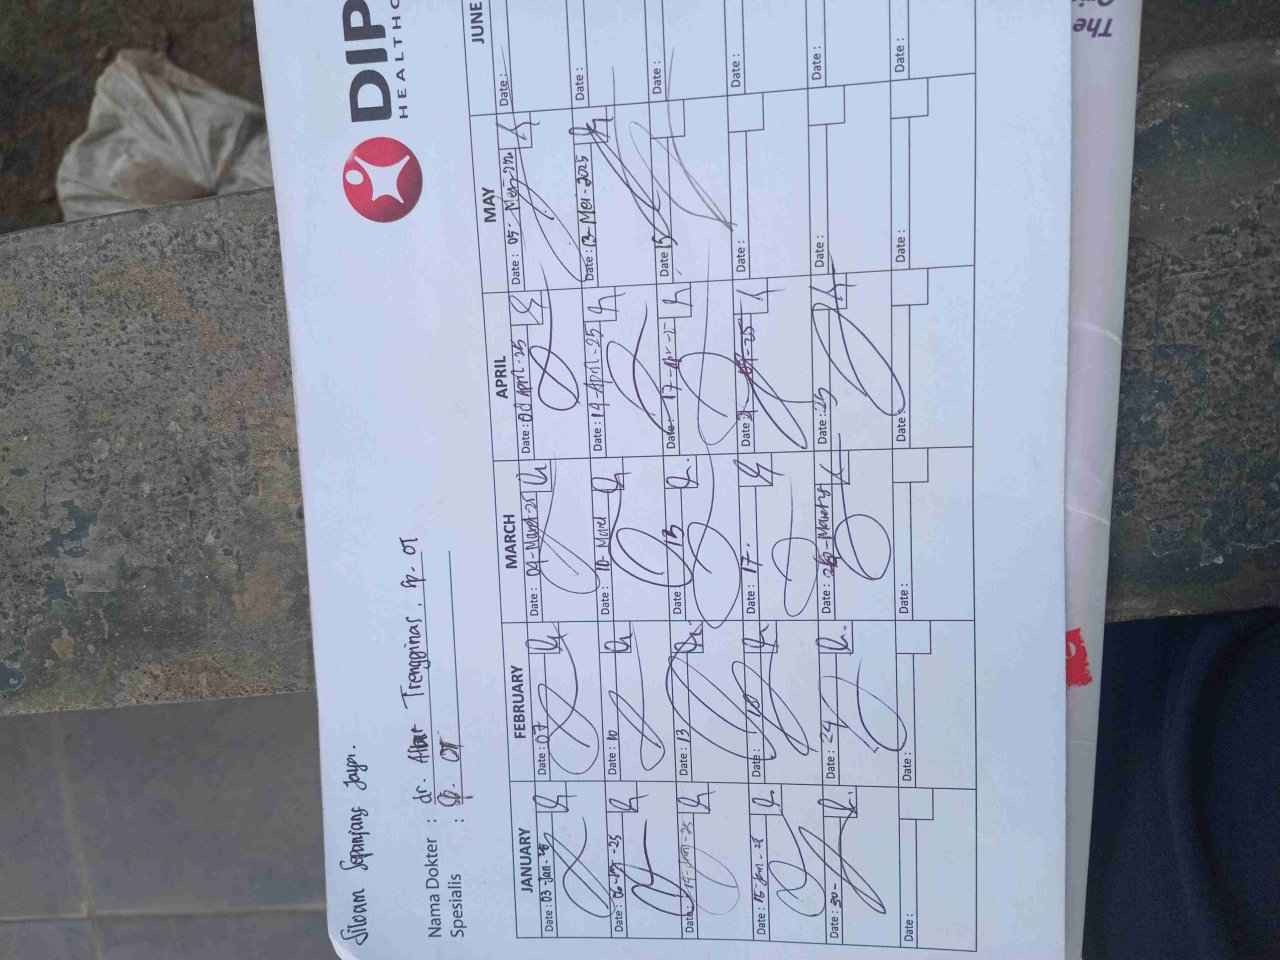 DIP
HEALTHC
Siloam Sepanjang Jaya.
Nama Dokter : dr. Trengginas, Sp. OT
Spesialis : Sp. OT
JANUARY FEBRUARY MARCH APRIL MAY JUNE
Date : 03-Jan- Date : 07 Date : 04-Maret-25 Date : April-25 Date : 05- Mei- Date :
Date : 06- -25 Date : 10 Date : 10- Maret Date : 14-April-25 Date : 13-Mei-2025 Date :
Date : 14-Jan-25 Date : 13 Date : 13 Date : 17-Apr-25 Date : 15 Date :
Date : 15-Jan- Date : Date : 17. Date : -25 Date : Date :
Date : 30- Date : 24 Date : Date : 25 Date : Date :
Date : Date : Date : Date : Date : Date :
The